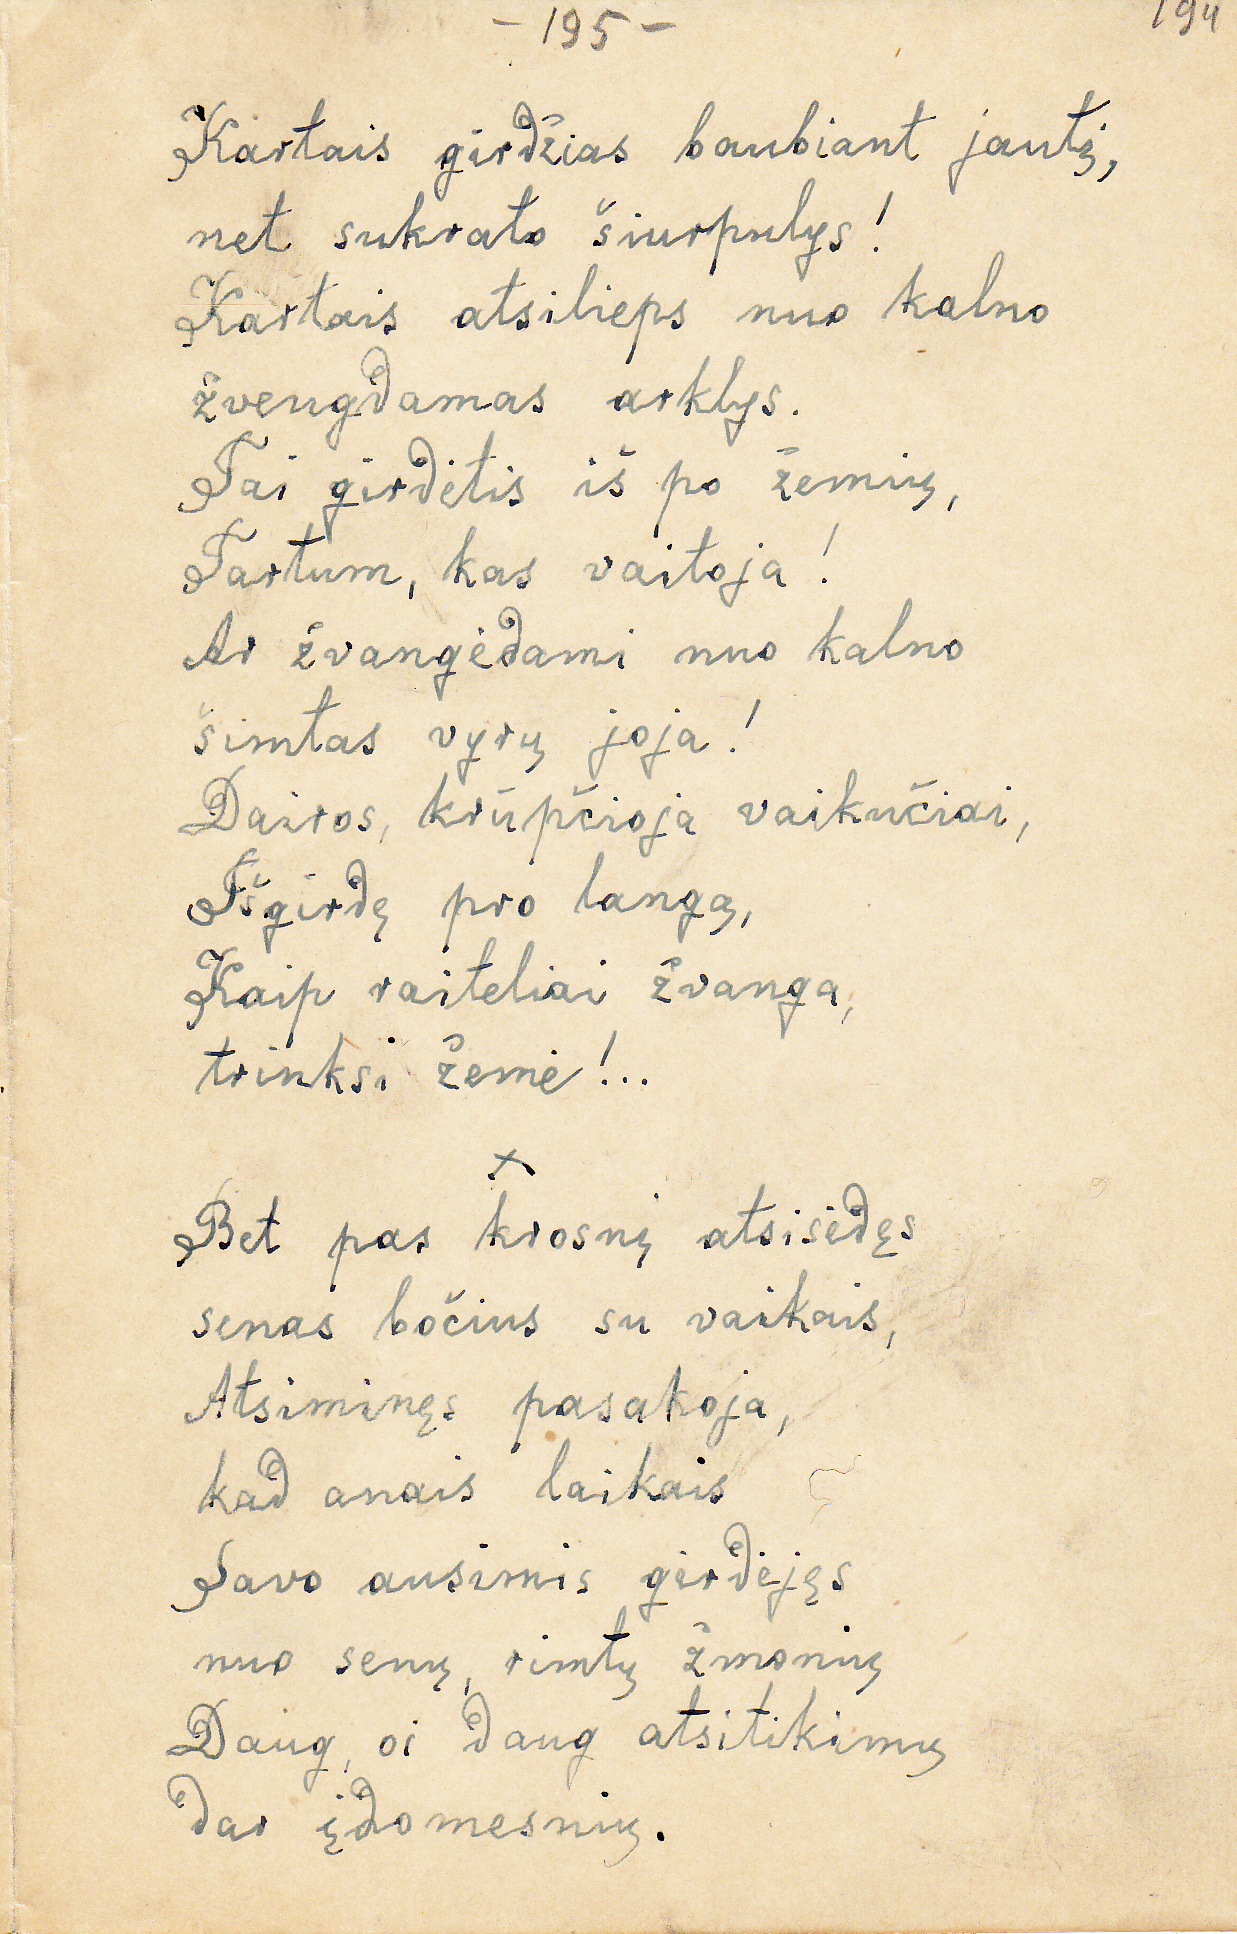 - 195 -
194
Kartais girdžias baubiant jautį,
net sukrato šiurpulys!
Kartais atsilieps nuo kalno
žvengdamas arklys.
Tai girdėtis iš po žemių,
Tartum, kas vaitoja!
Ar žvangėdami nuo kalno
šimtas vyrų joja!
Dairos, krūpčioja vaikučiai,
Išgirdę pro langą,
Kaip raiteliai žvanga,
trinksi žemė!...
x
Bet pas krosnį atsisėdęs
senas bočius su vaikais,
Atsiminęs pasakoja,
kad anais laikais
Savo ausimis girdėjęs
nuo senų, rimtų žmonių
Daug, oi daug atsitikimų
dar įdomesnių.